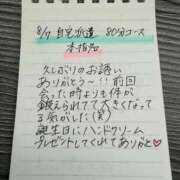 8/7 自宅派遣 80分コース
本指名
久しぶりのお誘い
ありがとう〜!! 前回
会った時よりも体が
鍛えられてて大きくなって
る気がした(笑)
誕生日にハンドクリーム
プレゼントしてくれてありがと♡